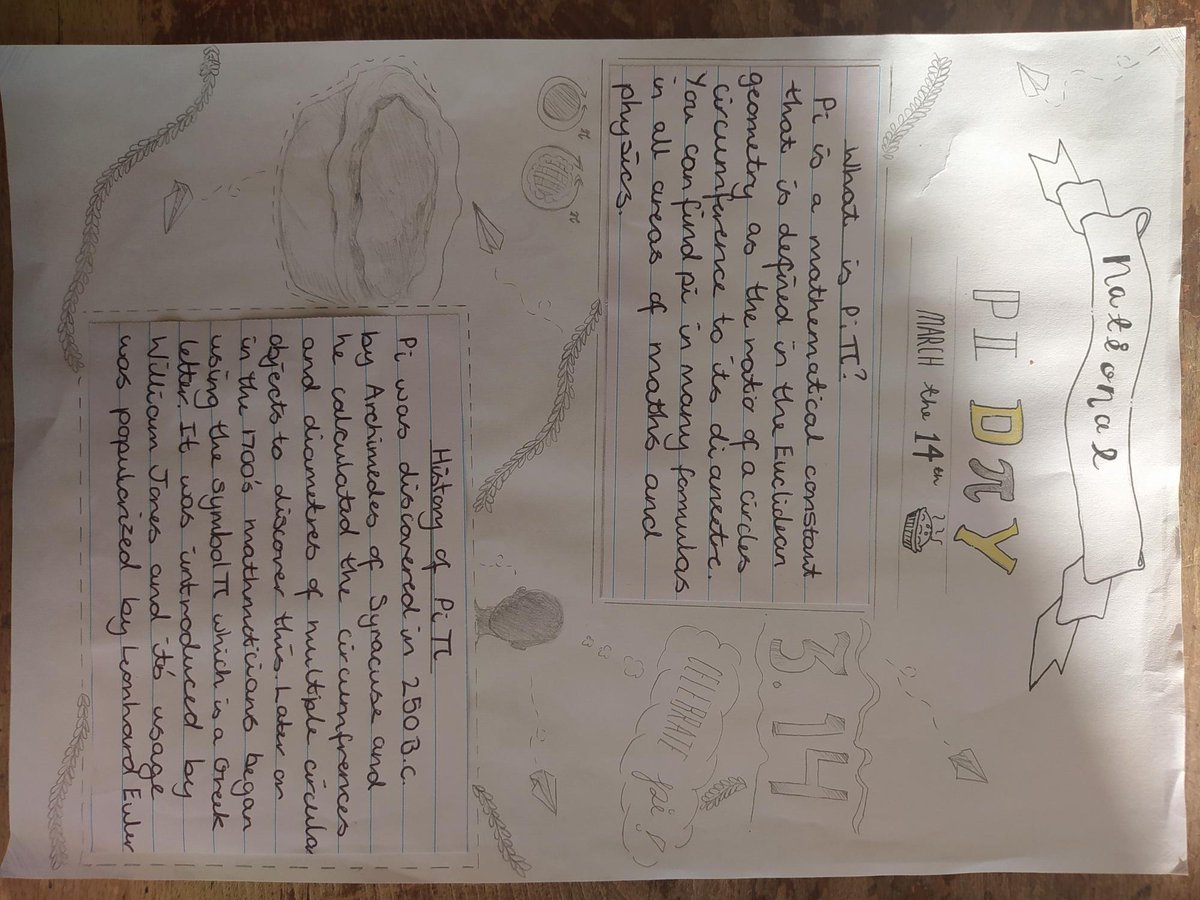 National
PI DπY
MARCH the 14th
What is Pi π?
Pi is a mathematical constant
that is defined in the Euclidean
geometry as the ratio of a circles
circumference to its diametre.
You can find pi in many fomulas
in all areas of maths and
physics.
3.14
CELEBRATE
pi!
π
π
History of Pi π
Pi was discovered in 250 B.C.
by Archimedes of Syracuse and
he calculated the circumfrences
and diametres of multiple circular
objects to discover this. Later on
in the 1700's mathmaticians began
using the symbol π which is a Greek
letter. It was introduced by
William Jones and it's usage
was popularized by Leonhard Euler